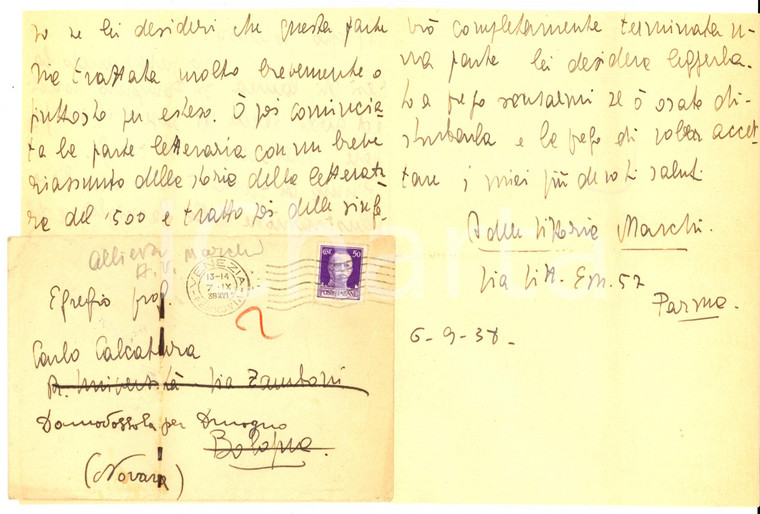 so se lei desideri che questa parte
sia trattata molto brevemente o
piuttosto per esteso. Ò poi comincia-
ta la parte letteraria con un breve
riassunto della storia della letteratu-
ra del '500 e tratto poi della
vrò completamente terminata u-
na parte lei desidera leggerla.
La prego scusarmi se ò osato di-
sturbarla e la prego di voler accet-
tare i miei più devoti saluti
Adele Vittoria Marchi.
Via Vitt. Em. 57
Parma.
6-9-38-
Allieva Marchi
A. V.
VENEZIA
13-14
7 IX
38 XVI
CENT. 50
POSTE ITALIANE
2
Egregio prof.
Carlo Calcaterra
R. Università Via Zamboni
Domodossola per Druogno
Bologna
(Novara)